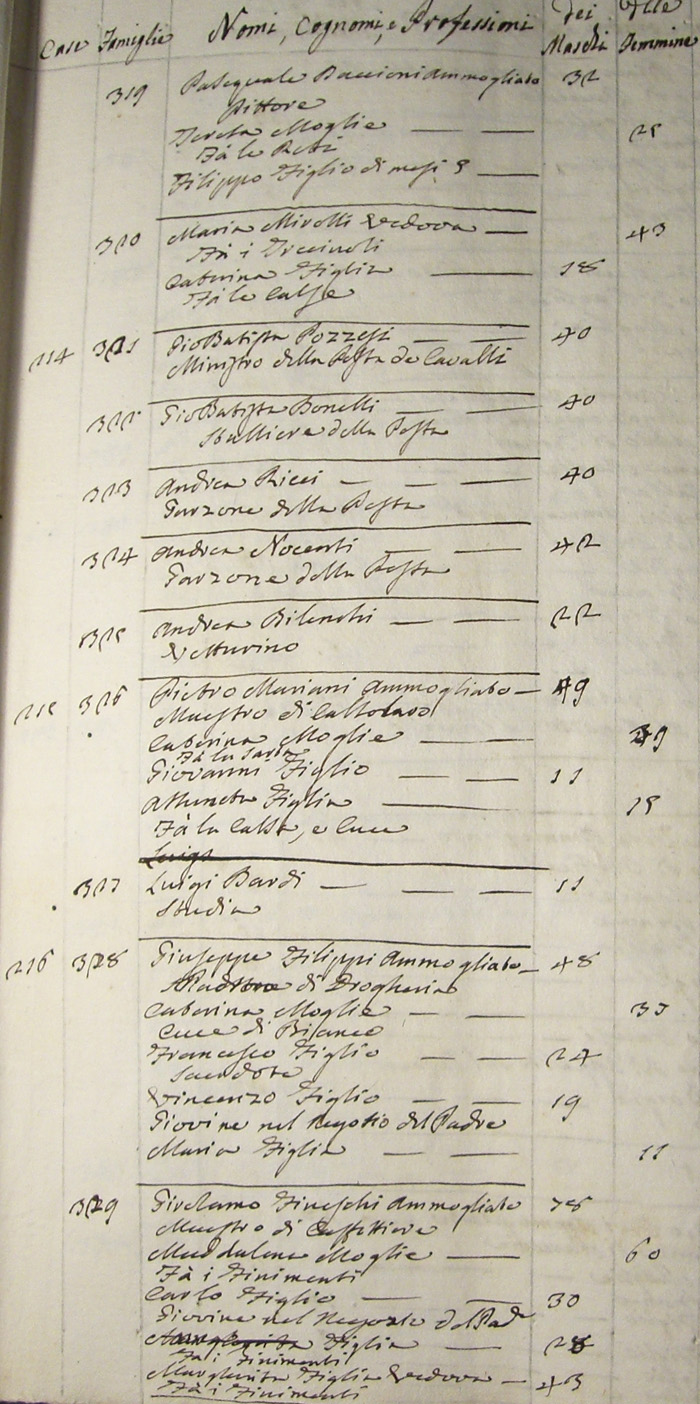 dei delle
Case Famiglie Nomi, Cognomi, e Professioni Maschi Femmine
319 Pasquale Baccioni Ammogliato 32
Pittore
Teresa Moglie — — 25
Fà le Reti
Filippo Figlio di mesi 8 —
320 Maria Mirolli Vedova — 43
Fà i
Caterina Figlia — 18
Fà le Calse
214 321 Gio Batista Pozzesi — — 40
Ministro della Posta de Cavalli
322 Gio Batista Bonelli — — 40
Stalliere della Posta
323 Andrea Ricci — — — 40
Garzone della Posta
324 Andrea Nocenti — — 42
Garzone della Posta
325 Andrea Bilenchi — — 22
Vetturino
215 326 Pietro Mariani Ammogliato — 49
Maestro di Calsolaro
Caterina Moglie — — 39
Fà la Sarta
Giovanni Figlio — — 11
Assunta Figlia — 15
Fà la Calsa, e Cuce
Luigi
327 Luigi Bardi — — — 11
Studia
216 328 Giuseppe Filippi Ammogliato — 48
Padrone di Drogheria
Caterina Moglie — — 33
Cuce di Bianco
Francesco Figlio — — 24
Sacerdote
Vincenzo Figlio — — 19
Giovine nel Negozio del Padre
Maria Figlia — — 11
329 Girolamo Fineschi Ammogliato 78
Maestro di Caffettiere
Maddalena Moglie — 60
Fà i Finimenti
Carlo Figlio — — 30
Giovine nel Negozio del Pad
Figlia — 28
Fà i Finimenti
Margherita Figlia Vedova — 43
Fà i Finimenti